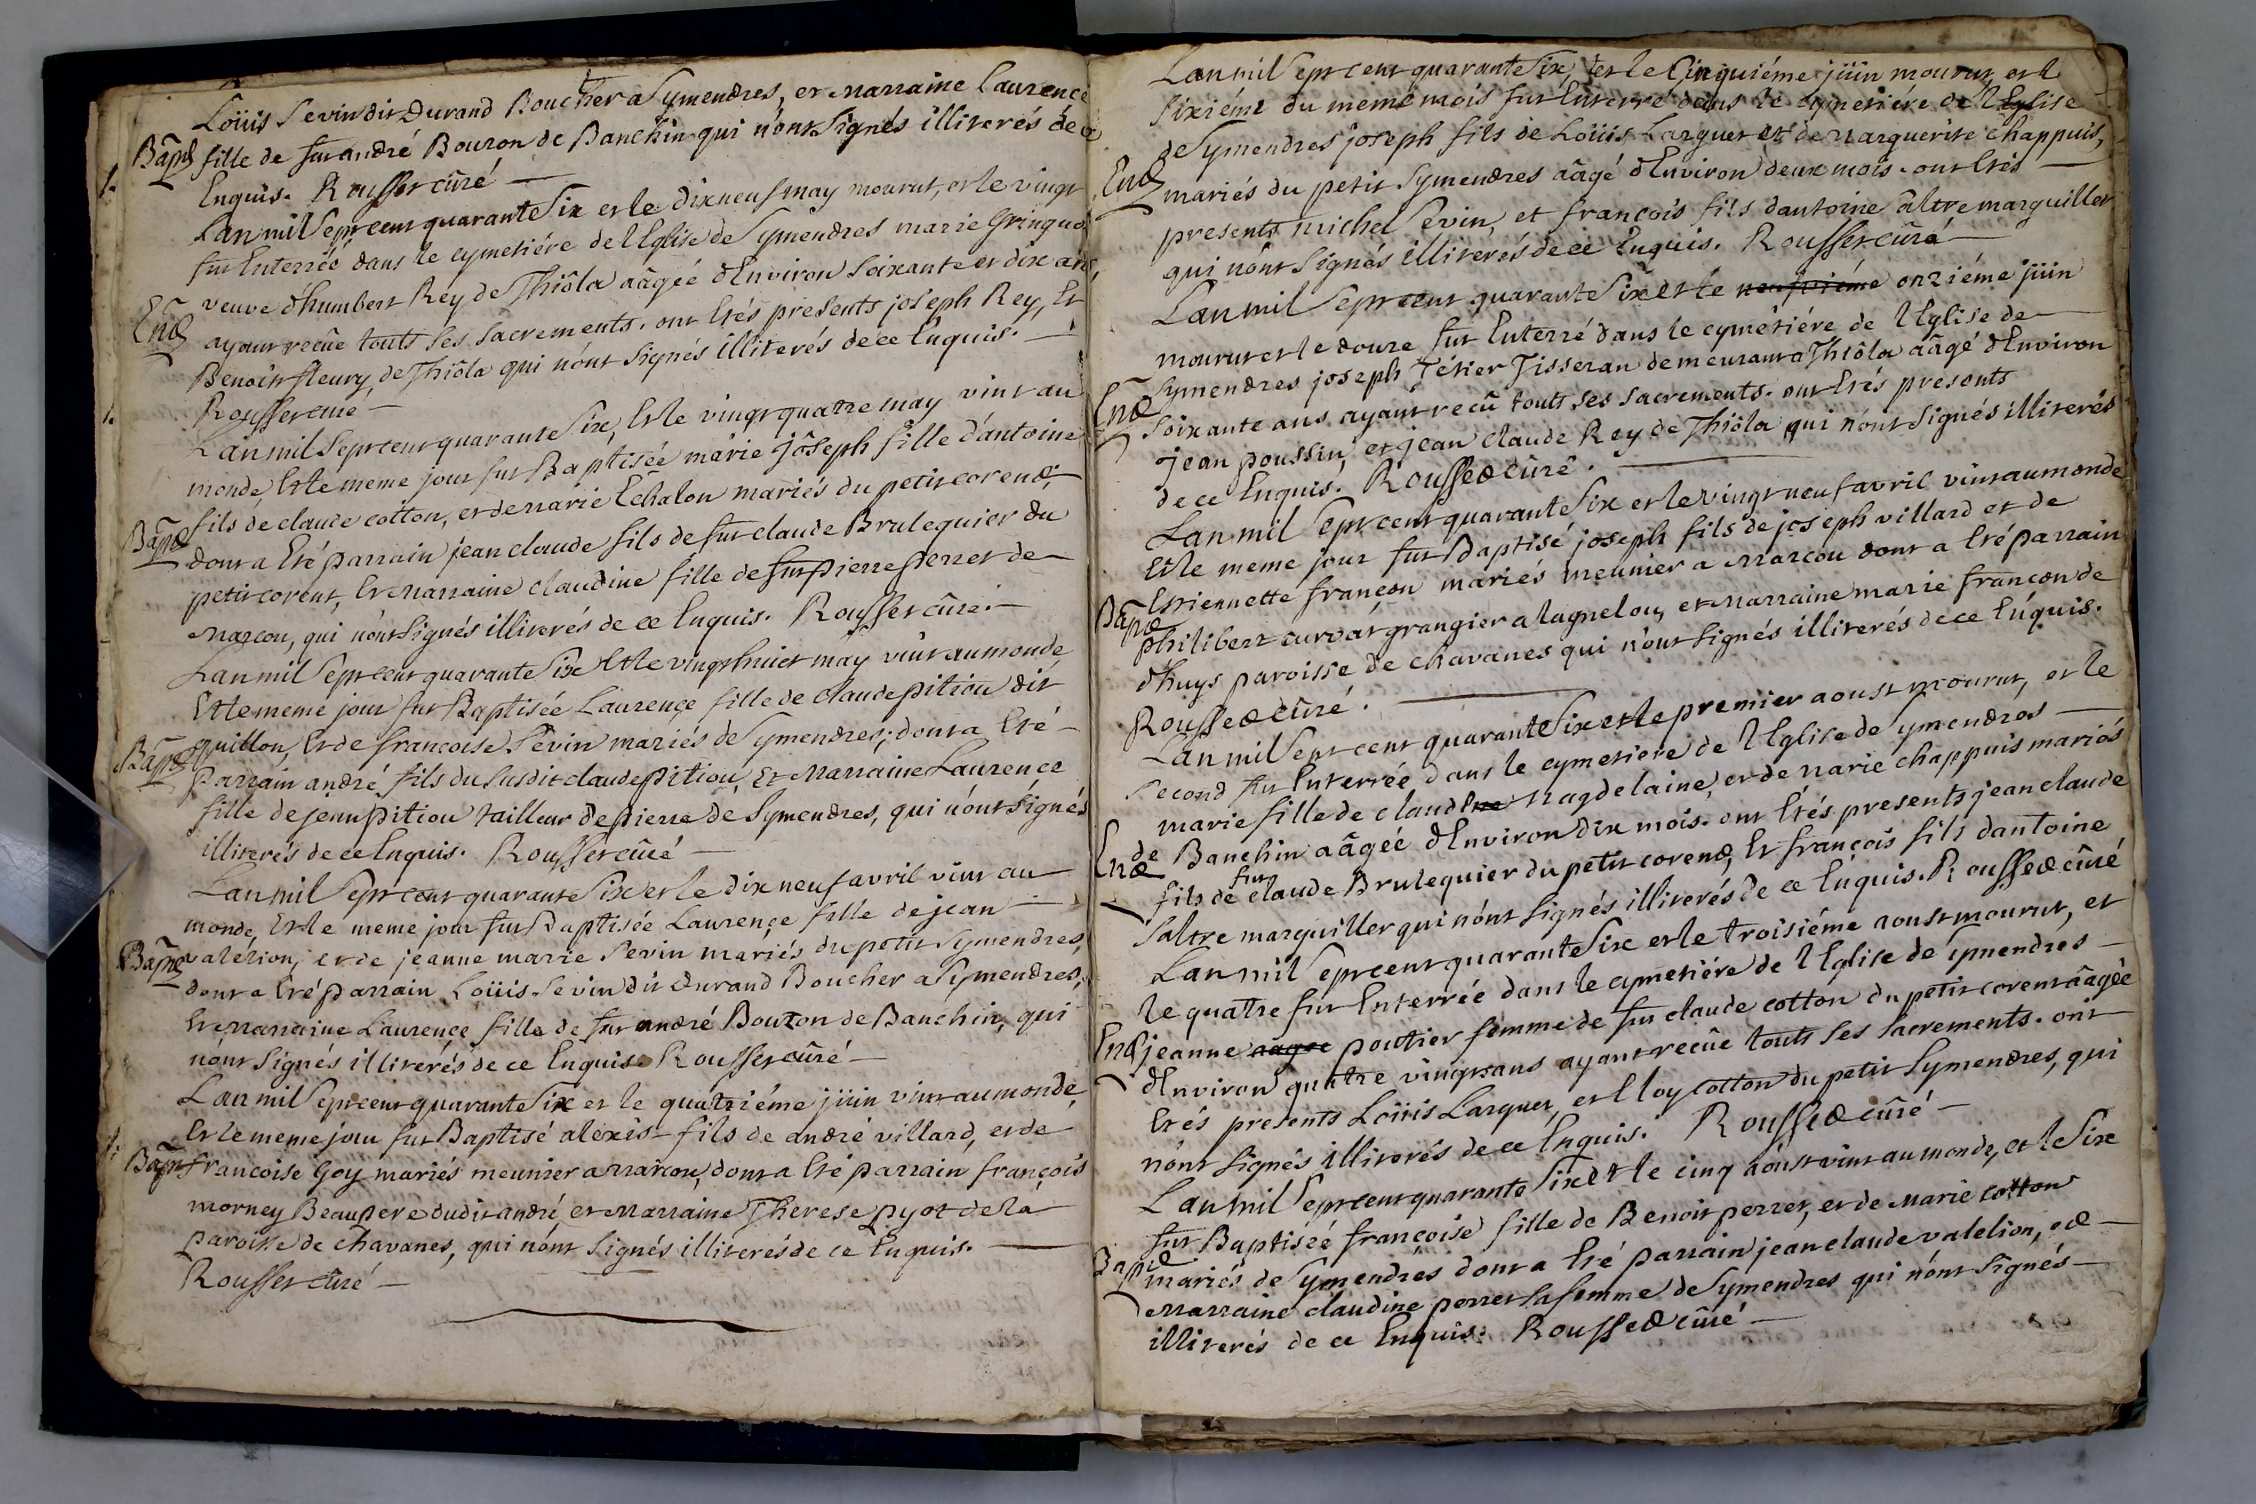 Loüis Sevin dit Durand Boucher a Symendres, et Marraine Laurence
Bapt fille de fut andré Bouzon de Banchin qui n'ont signés illiterés de ce
Enquis. Rousset cûré
Lan mil Sept cent quarante Six et le dix neuf may mourut, et le vingt
fut Enterrée dans le cymetiére de l'Eglise de Symendres marie Gringue
veuve d'humbert Rey de Thiôla aâgée d'Environ Soixante et dix ans,
End ayant recûe touts ses sacrements. ont Etés presents joseph Rey, Et
Benoit fleury de Thiôla qui n'ont signés illiterés de ce Enquis.
Rousset cûré
Lan mil Sept cent quarante Six, Et le vingt quatre may vint au
monde, Et le meme jour fut Baptisée marie jôseph fille d'antoine
fils de claude cotton, et de marie Echalon mariés du petit corend,
Bapd dont a Eté parrain jean claude fils de fut claude Brulequier du
petit corent, Et Marraine claudine fille de fut pierre perret de
Marcou, qui n'ont signés illiterés de ce Enquis. Rousset cûré.
Lan mil Sept cent quarante Six Et le vingt huict may vint au monde
Et le meme jour fut Baptisée Laurençe fille de claude pitiou dit
quillon, Et de francoise Sevin mariés de Symendres; dont a Eté
Bapd parrain andré fils du susdit claude pitiou, Et Marraine Laurence
fille de jean pitiou tailleur de pierre de Symendres, qui n'ont signés
illiterés de ce Enquis. Rousset cûré
Lan mil Sept cent quarante Six et le dix neuf avril vint au
monde, Et le meme jour fut Baptisée Laurençe fille de jean
Bapd valélion, et de jeanne marie Sevin mariés du petit Symendres,
dont a Eté parrain Loüis Sevin dit Durand Boucher a Symendres,
Et Marraine Laurençe fille de fut andré Bouzon de Banchin, qui
n'ont signés illiterés de ce Enquis. Rousset cûré
Lan mil Sept cent quarante Six et le quatriéme jüin vint au monde,
Et le meme jour fut Baptisé alexis fils de andré villard, et de
Bapt francoise Goy mariés meunier a Marcou, dont a Eté parrain françois
morney Beaupere dudit andré, et Marraine Therese pyot de la
paroisse de chavanes, qui n'ont signés illiterés de ce Enquis.
Rousset cûré
Lan mil Sept cent quarante Six, et le Cinquiéme jüin mourut, et le
Sixiéme du meme mois fut Enterré dans le cymetiére de l'Eglise
de Symendres joseph fils de Loüis Larguet et de Marguerite chappuis,
End mariés du petit Symendres aâgé d'Environ deux mois. ont Etés
presents michel Sevin, et françois fils d'antoine altre marguiller
qui n'ont signés illiterés de ce Enquis. Rousset cûré
Lan mil Sept cent quarante Six et le neufviéme onziéme jüin
mourut et le douze fut Enterré dans le cymétiére de l'Eglise de
Symendres joseph Tétier Tisseran demeurant a Thiôla aâgé d'Environ
End soixante ans ayant recû touts ses sacrements. ont Etés presents
jean poussin, et jean claude Rey de Thiôla qui n'ont signés illiterés
de ce Enquis. Roussed cûré.
Lan mil Sept cent quarante Six et le vingt neuf avril vint au monde
Et le meme jour fut Baptisé joseph fils de joseph villard et de
Estiennette françon mariés meunier a Marcou dont a Eté parrain
Bapd philibert curvat grangier a lagnelou, et Marraine marie françon de
d'huys paroisse de chavanes qui n'ont signés illiterés de ce Enquis.
Roussed cûré.
Lan mil Sept cent quarante Six et le premier aoust mourut, et le
second fut Enterrée dans le cymetiere de l'Eglise de Symendres
marie fille de claudine Magdelaine, et de Marie chappuis mariés
End de Banchin aâgée d'Environ dix mois. ont Etés presents jean claude
fils de fut claude Brulequier du petit corend, Et françois fils d'antoine
saltre marguiller qui n'ont signés illiterés de ce Enquis. Roussed cûré
Lan mil Sept cent quarante Six et le troisiéme aoust mourut, et
le quatre fut Enterrée dans le cymetiére de l'Eglise de Symendres
End jeanne aagée poutier femme de fut claude cotton du petit corent aâgée
d'Environ quatre vingts ans ayant recûe touts ses sacrements. ont
Etés presents Loüis Larguet, et Eloy cotton du petit Symendres, qui
n'ont signés illiterés de ce Enquis. Roussed cûré
Lan mil Sept cent quarante Six et le cinq aoust vint au monde, et le Six
fut Baptiséé françoise fille de Benoit perret, et de Marie cotton
Bapd mariés de Symendres dont a Eté parrain jean claude valelion, ed
Marraine claudine perret sa femme de Symendres qui n'ont signés
illiterés de ce Enquis. Roussed cûré